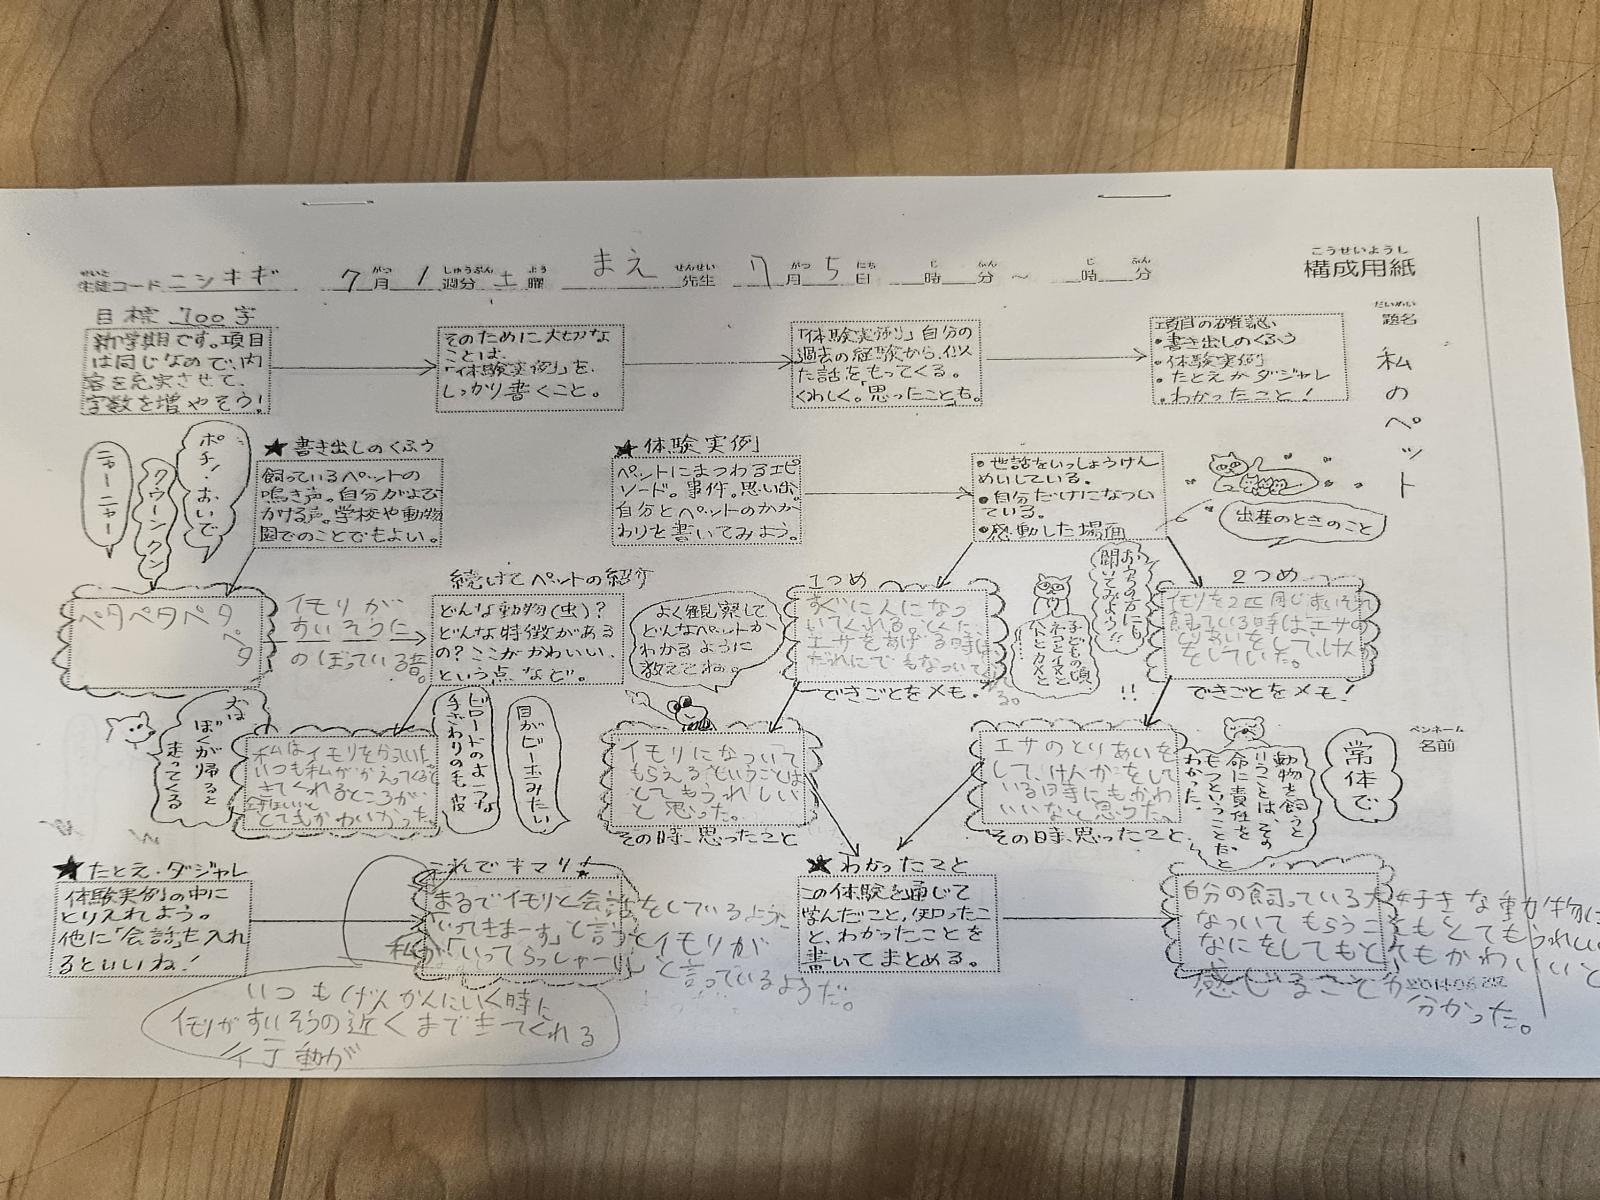 こうせいようし
構成用紙
せいと
生徒コード ニシキギ 7月 1週分 土曜 まえ 先生 7月 5日 時 分 ～ 時 分
がつ しゅうぶん よう せんせい がつ にち じ ふん じ ふん
だいめい
題名
私のペット
目標 700字
新学期です。項目
は同じなので、内
容を充実させて、
字数を増やそう!
そのために大切な
ことは、
「体験実例」を、
しっかり書くこと。
「体験実例」自分の
過去の経験から、似
た話をもってくる。
くわしく。思ったことも。
項目の確認
・書き出しのくふう
・体験実例
・たとえかダジャレ
・わかったこと!
ポチ!おいで
クウーンクン
ニャーニャー
★書き出しのくふう
飼っているペットの
鳴き声。自分がよび
かける声。学校や動物
園でのことでもよい。
★体験実例
ペットにまつわるエピ
ソード。事件。思い出。
自分とペットのかか
わりを書いてみよう。
・世話をいっしょうけん
めいしている。
・自分だけになつい
ている。
・感動した場面
出産のときのこと
ペタペタペタ
ペタ
イモリが
すいそうに
のぼっている音。
続けてペットの紹介
どんな動物(虫)?
どんな特徴がある
の?ここがかわいい、
という点など。
よく観察して
どんなペットか
わかるように
教えてね。
1つめ
すぐに人になつ
いてくれる。とくに、
エサをあげる時は、
だれにでもなついて
る。
できごとをメモ!
おうちの方にも
聞いてみよう!!
子どもの頃
ネコとイヌと
ハトとカメと
!!
2つめ
イモリを2匹同じすいそうで
飼っている時は、エサの
とりあいをして、けんか
をしていた。
できごとをメモ!
犬は
ぼくが帰ると
走ってくる
ビロードのような
手ざわりの毛皮
目がビー玉みたい
イモリになついて
もらえるということは
とてもうれしい
と思った。
その時、思ったこと
エサのとりあいを
して、けんかをして
いる時にもかわ
いいなと思った。
その時、思ったこと
動物を飼うと
いうことは、その
命に責任を
もつということだと
わかった。
常体で
ペンネーム
名前
★たとえ・ダジャレ
体験実例の中に
とりいれよう。
他に「会話」も入れ
るといいね!
これでキマリ!
まるでイモリと会話をしているよう
「いってきまーす」と言うとイモリが
私が「いってらっしゃーい」と言っているようだ。
いつもげんかんにいく時に
イモリがすいそうの近くまできてくれる
行動が
★わかったこと
この体験を通じて
学んだこと、知ったこ
と、わかったことを
書いてまとめる。
自分の飼っている大好きな動物に
なついてもらうこともとてもうれしい
なにをしてもとてもかわいいと
感じることが
分かった。